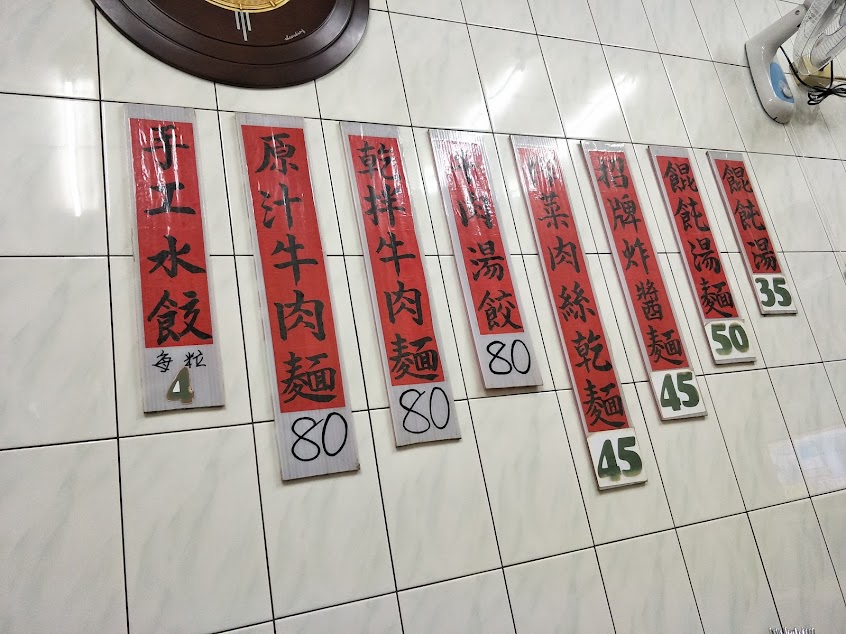 手工水餃
每粒
4
原汁牛肉麵
80
乾拌牛肉麵
80
牛肉湯餃
80
菜肉絲乾麵
45
招牌炸醬麵
45
餛飩湯麵
50
餛飩湯
35